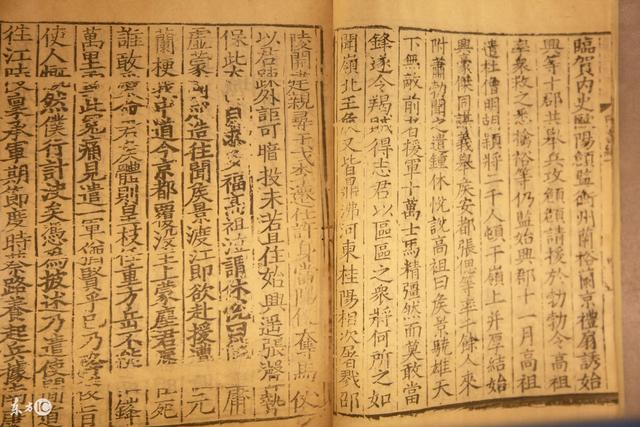 臨賀內史歐陽頠監衡州蘭裕蘭京禮扇誘始
興等十郡共舉兵攻頠頠請援於勃勃令高祖
率衆救之悉擒裕等仍監始興郡十一月高祖
遣杜僧明胡穎將二千人頓于嶺上并厚結始
興豪傑同謀義舉侯安都張偲等率千餘人來
附蕭勃聞之遣鍾休悅說高祖曰侯景驍雄天
下無敵前者援軍十萬士馬精彊然而莫敢當
鋒遂令羯賊得志君以區區之衆將何所之如
聞嶺北王侯又皆鼎沸河東桂陽相次屠戮邵
陵開建親尋干戈李遷仕許身當陽便奪馬仗
以君疎外詎可暗投未若且住始興遙張聲勢
保此太 自求多福高祖泣謂休悅曰 庸
虛蒙國成造往聞侯景渡江即欲赴援遭 元
蘭梗我中道今京都覆沒主上蒙塵君辱臣死
誰敢愛命君侯體則皇枝任重方岳不能 鋒
萬里雪此冤痛見遣一軍猶賢乎已乃降後旨
使人慨然僕行計決矣憑爲披述乃遣使間道
往江陵稟承軍期節度時蔡路養起兵據南
东方IC